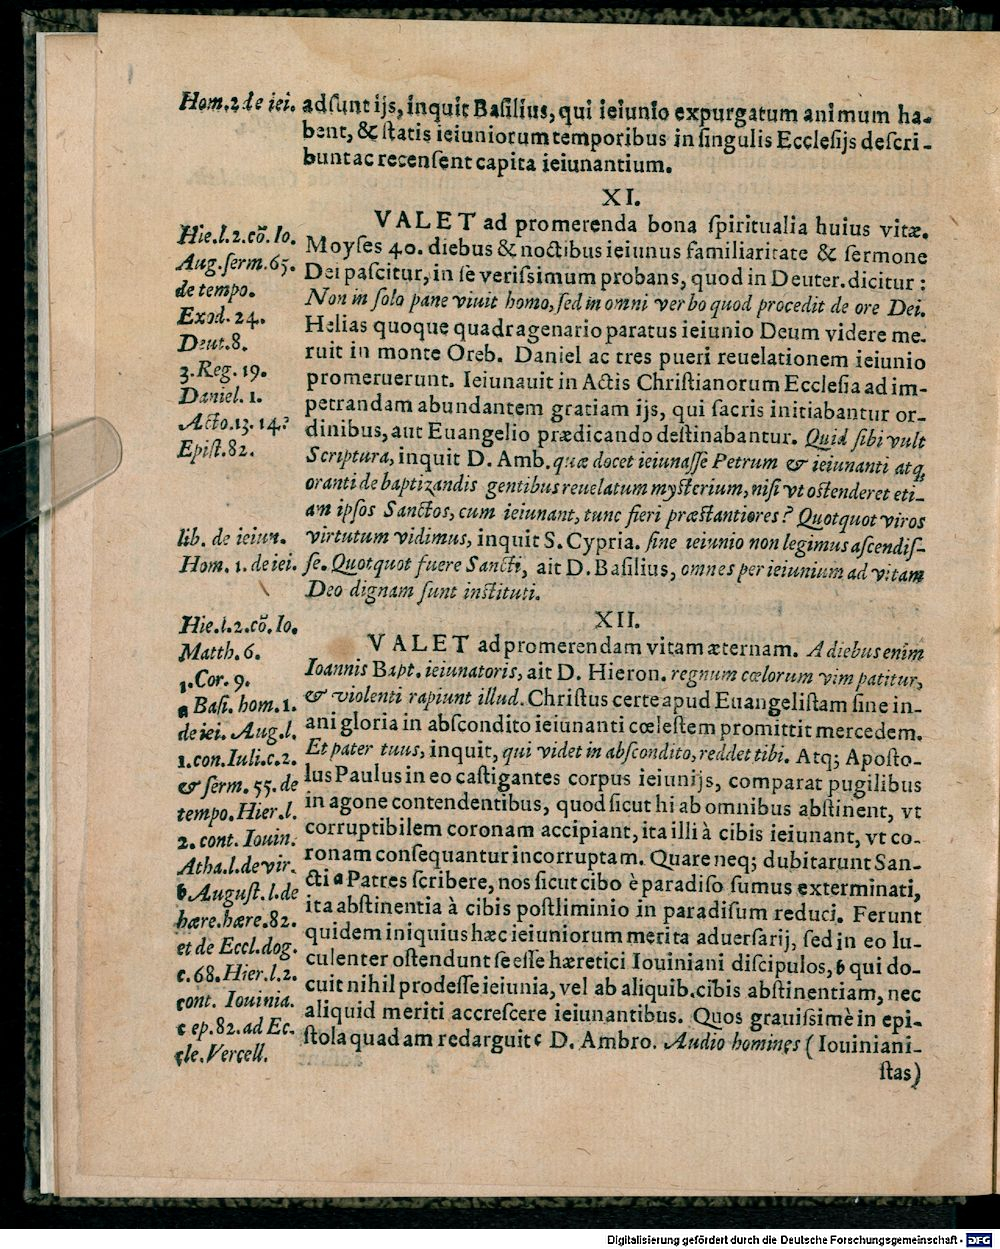 Hom. 2 de iei.
adſunt ijs, inquit Baſilius, qui ieiunio expurgatum animum ha-
bent, & ſtatis ieiuniorum temporibus in ſingulis Eccleſijs deſcri-
bunt ac recenſent capita ieiunantium.
XI.
VALET ad promerenda bona ſpiritualia huius vitæ.
Moyſes 40. diebus & noctibus ieiunus familiaritate & ſermone
Dei paſcitur, in ſe veriſsimum probans, quod in Deuter. dicitur:
Non in ſolo pane viuit homo, ſed in omni verbo quod procedit de ore Dei.
Helias quoque quadragenario paratus ieiunio Deum videre me-
ruit in monte Oreb. Daniel ac tres pueri reuelationem ieiunio
promeruerunt. Ieiunauit in Actis Chriſtianorum Eccleſia ad im-
petrandam abundantem gratiam ijs, qui ſacris initiabantur or-
dinibus, aut Euangelio prædicando deſtinabantur. Quid ſibi vult
Scriptura, inquit D. Amb. quæ docet ieiunaſſe Petrum & ieiunanti atq;
oranti de baptizandis gentibus reuelatum myſterium, niſi vt oſtenderet eti-
am ipſos Sanctos, cum ieiunant, tunc fieri præſtantiores? Quotquot viros
virtutum vidimus, inquit S. Cypria. ſine ieiunio non legimus aſcendiſ-
ſe. Quotquot fuere Sancti, ait D. Baſilius, omnes per ieiunium ad vitam
Deo dignam ſunt inſtituti.
Hie. l. 2. cō. Io.
Aug. ſerm. 65.
de tempo.
Exod. 24.
Deut. 8.
3. Reg. 19.
Daniel. 1.
Acto. 13. 14.
Epiſt. 82.
lib. de ieiun.
Hom. 1. de iei.
XII.
VALET ad promerendam vitam æternam. A diebus enim
Ioannis Bapt. ieiunatoris, ait D. Hieron. regnum cœlorum vim patitur,
& violenti rapiunt illud. Chriſtus certe apud Euangeliſtam ſine in-
ani gloria in abſcondito ieiunanti cœleſtem promittit mercedem.
Et pater tuus, inquit, qui videt in abſcondito, reddet tibi. Atq; Apoſto-
lus Paulus in eo caſtigantes corpus ieiunijs, comparat pugilibus
in agone contendentibus, quod ſicut hi ab omnibus abſtinent, vt
corruptibilem coronam accipiant, ita illi à cibis ieiunant, vt co-
ronam conſequantur incorruptam. Quare neq; dubitarunt San-
cti a Patres ſcribere, nos ſicut cibo è paradiſo ſumus exterminati,
ita abſtinentia à cibis poſtliminio in paradiſum reduci. Ferunt
quidem iniquius hæc ieiuniorum merita aduerſarij, ſed in eo lu-
culenter oſtendunt ſe eſſe hæretici Iouiniani diſcipulos, b qui do-
cuit nihil prodeſſe ieiunia, vel ab aliquib. cibis abſtinentiam, nec
aliquid meriti accreſcere ieiunantibus. Quos grauiſsimè in epi-
ſtola quadam redarguit c D. Ambro. Audio homines (Iouiniani-
ſtas)
Hie. l. 2. cō. Io.
Matth. 6.
1. Cor. 9.
a Baſi. hom. 1.
de iei. Aug. l.
1. con. Iuli. c. 2.
& ſerm. 55. de
tempo. Hier. l.
2. cont. Iouin.
Atha. l. de vir.
b Auguſt. l. de
hære. hære. 82.
et de Eccl. dog.
c. 68. Hier. l. 2.
cont. Iouinia.
c ep. 82. ad Ec.
cle. Vercell.
Digitalisierung gefördert durch die Deutsche Forschungsgemeinschaft - DFG